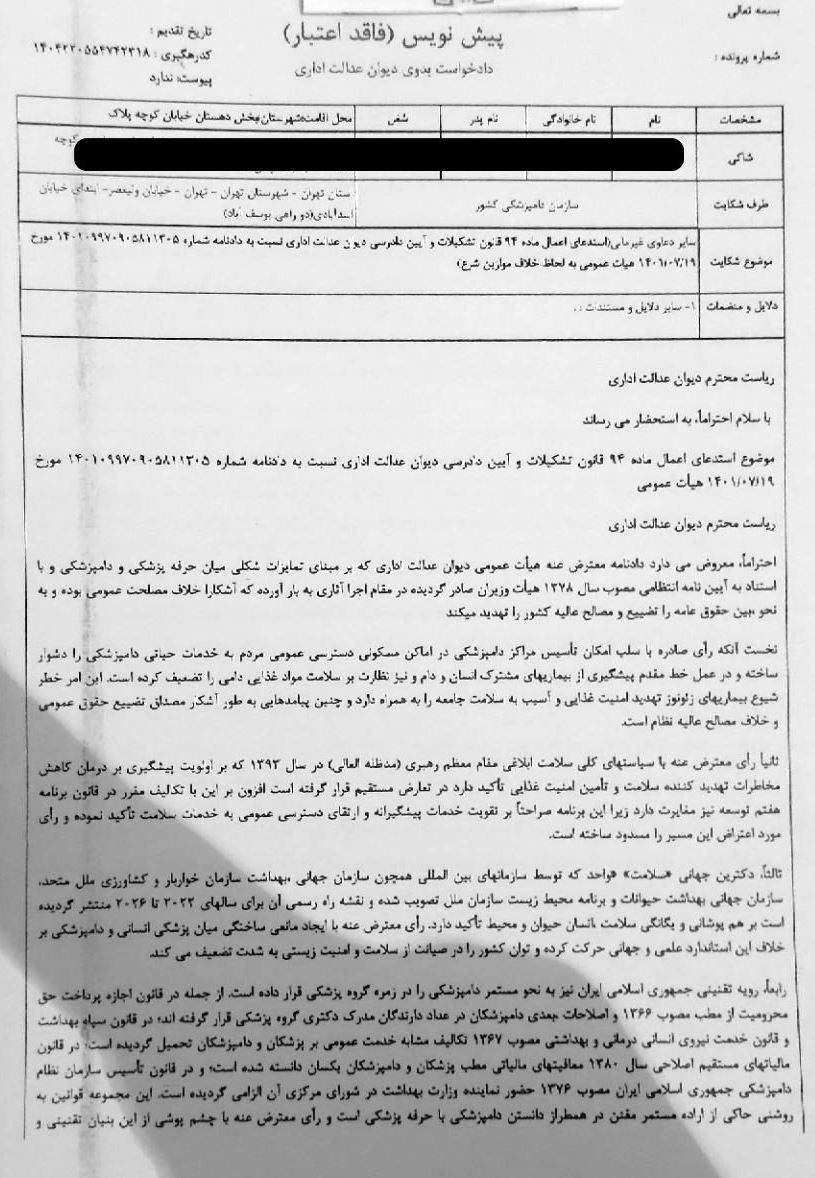 بسمه تعالی
شماره پرونده :
پیش نویس (فاقد اعتبار)
دادخواست بدوی دیوان عدالت اداری
تاریخ تقدیم :
کدرهگیری : ۱۴۰۴۲۲۰۵۵۴۷۴۲۳۱۸
پیوست: ندارد
مشخصات نام نام خانوادگی نام پدر شغل محل اقامت:شهرستان:بخش دهستان خیابان کوچه پلاک
شاکی کوچه
طرف شکایت سازمان دامپزشکی کشور ستان تهران - شهرستان تهران - تهران - خیابان ولیعصر- ابتدای خیابان
اسدآبادی(دو راهی یوسف آباد)
موضوع شکایت سایر دعاوی غیرمالی(استدعای اعمال ماده ۹۴ قانون تشکیلات و آیین دادرسی دیوان عدالت اداری نسبت به دادنامه شماره ۱۴۰۱۰۹۹۷۰۹۰۵۸۱۱۳۰۵ مورخ
۱۴۰۱/۰۷/۱۹ هیات عمومی به لحاظ خلاف موازین شرع)
دلایل و منضمات ۱- سایر دلایل و مستندات : .
ریاست محترم دیوان عدالت اداری
با سلام احتراماً، به استحضار می رساند
موضوع استدعای اعمال ماده ۹۴ قانون تشکیلات و آیین دادرسی دیوان عدالت اداری نسبت به دادنامه شماره ۱۴۰۱۰۹۹۷۰۹۰۵۸۱۱۳۰۵ مورخ
۱۴۰۱/۰۷/۱۹ هیأت عمومی
ریاست محترم دیوان عدالت اداری
احتراماً، معروض می دارد دادنامه معترض عنه هیأت عمومی دیوان عدالت اداری که بر مبنای تمایزات شکلی میان حرفه پزشکی و دامپزشکی و با
استناد به آیین نامه انتظامی مصوب سال ۱۳۷۸ هیأت وزیران صادر گردیده در مقام اجرا آثاری به بار آورده که آشکارا خلاف مصلحت عمومی بوده و به
نحو .بین حقوق عامه را تضییع و مصالح عالیه کشور را تهدید میکند
نخست آنکه رأی صادره با سلب امکان تأسیس مراکز دامپزشکی در اماکن مسکونی دسترسی عمومی مردم به خدمات حیاتی دامپزشکی را دشوار
ساخته و در عمل خط مقدم پیشگیری از بیماریهای مشترک انسان و دام و نیز نظارت بر سلامت مواد غذایی دامی را تضعیف کرده است. این امر خطر
شیوع بیماریهای زئونوز تهدید امنیت غذایی و آسیب به سلامت جامعه را به همراه دارد و چنین پیامدهایی به طور آشکار مصداق تضییع حقوق عمومی و
و خلاف مصالح عالیه نظام است.
ثانیاً رأی معترض عنه با سیاستهای کلی سلامت ابلاغی مقام معظم رهبری (مدظله العالی) در سال ۱۳۹۳ که بر اولویت پیشگیری بر درمان کاهش
مخاطرات تهدید کننده سلامت و تأمین امنیت غذایی تأکید دارد در تعارض مستقیم قرار گرفته است افزون بر این با تکالیف مقرر در قانون برنامه
هفتم توسعه نیز مغایرت دارد زیرا این برنامه صراحتاً بر تقویت خدمات پیشگیرانه و ارتقای دسترسی عمومی به خدمات سلامت تأکید نموده و رأی
مورد اعتراض این مسیر را مسدود ساخته است.
ثالثاً، دکترین جهانی «سلامت» .واحد که توسط سازمانهای بین المللی همچون سازمان جهانی .بهداشت سازمان خواربار و کشاورزی ملل متحد،
سازمان جهانی بهداشت حیوانات و برنامه محیط زیست سازمان ملل تصویب شده و نقشه راه رسمی آن برای سالهای ۲۰۲۲ تا ۲۰۲۶ منتشر گردیده
است بر هم پوشانی و یگانگی سلامت .انسان حیوان و محیط تأکید دارد. رأی معترض عنه با ایجاد مانعی ساختگی میان پزشکی انسانی و دامپزشکی بر
خلاف این استاندارد علمی و جهانی حرکت کرده و توان کشور را در صیانت از سلامت و امنیت زیستی به شدت تضعیف می کند.
رابعاً، رویه تقنینی جمهوری اسلامی ایران نیز به نحو مستمر دامپزشکی را در زمره گروه پزشکی قرار داده است. از جمله در قانون اجازه پرداخت حق
محرومیت از مطب مصوب ۱۳۶۶ و اصلاحات .بعدی دامپزشکان در عداد دارندگان مدرک دکتری گروه پزشکی قرار گرفته اند؛ در قانون سپاه بهداشت
و قانون خدمت نیروی انسانی درمانی و بهداشتی مصوب ۱۳۶۷ تکالیف مشابه خدمت عمومی بر پزشکان و دامپزشکان تحمیل گردیده است؛ در قانون
مالیاتهای مستقیم اصلاحی سال ۱۳۸۰ معافیتهای مالیاتی مطب پزشکان و دامپزشکان یکسان دانسته شده است؛ و در قانون تأسیس سازمان نظام
دامپزشکی جمهوری اسلامی ایران مصوب ۱۳۷۶ حضور نماینده وزارت بهداشت در شورای مرکزی آن الزامی گردیده است. این مجموعه قوانین به
روشنی حاکی از اراده مستمر مقنن در همطراز دانستن دامپزشکی با حرفه پزشکی است و رأی معترض عنه با چشم پوشی از این بنیان تقنینی و